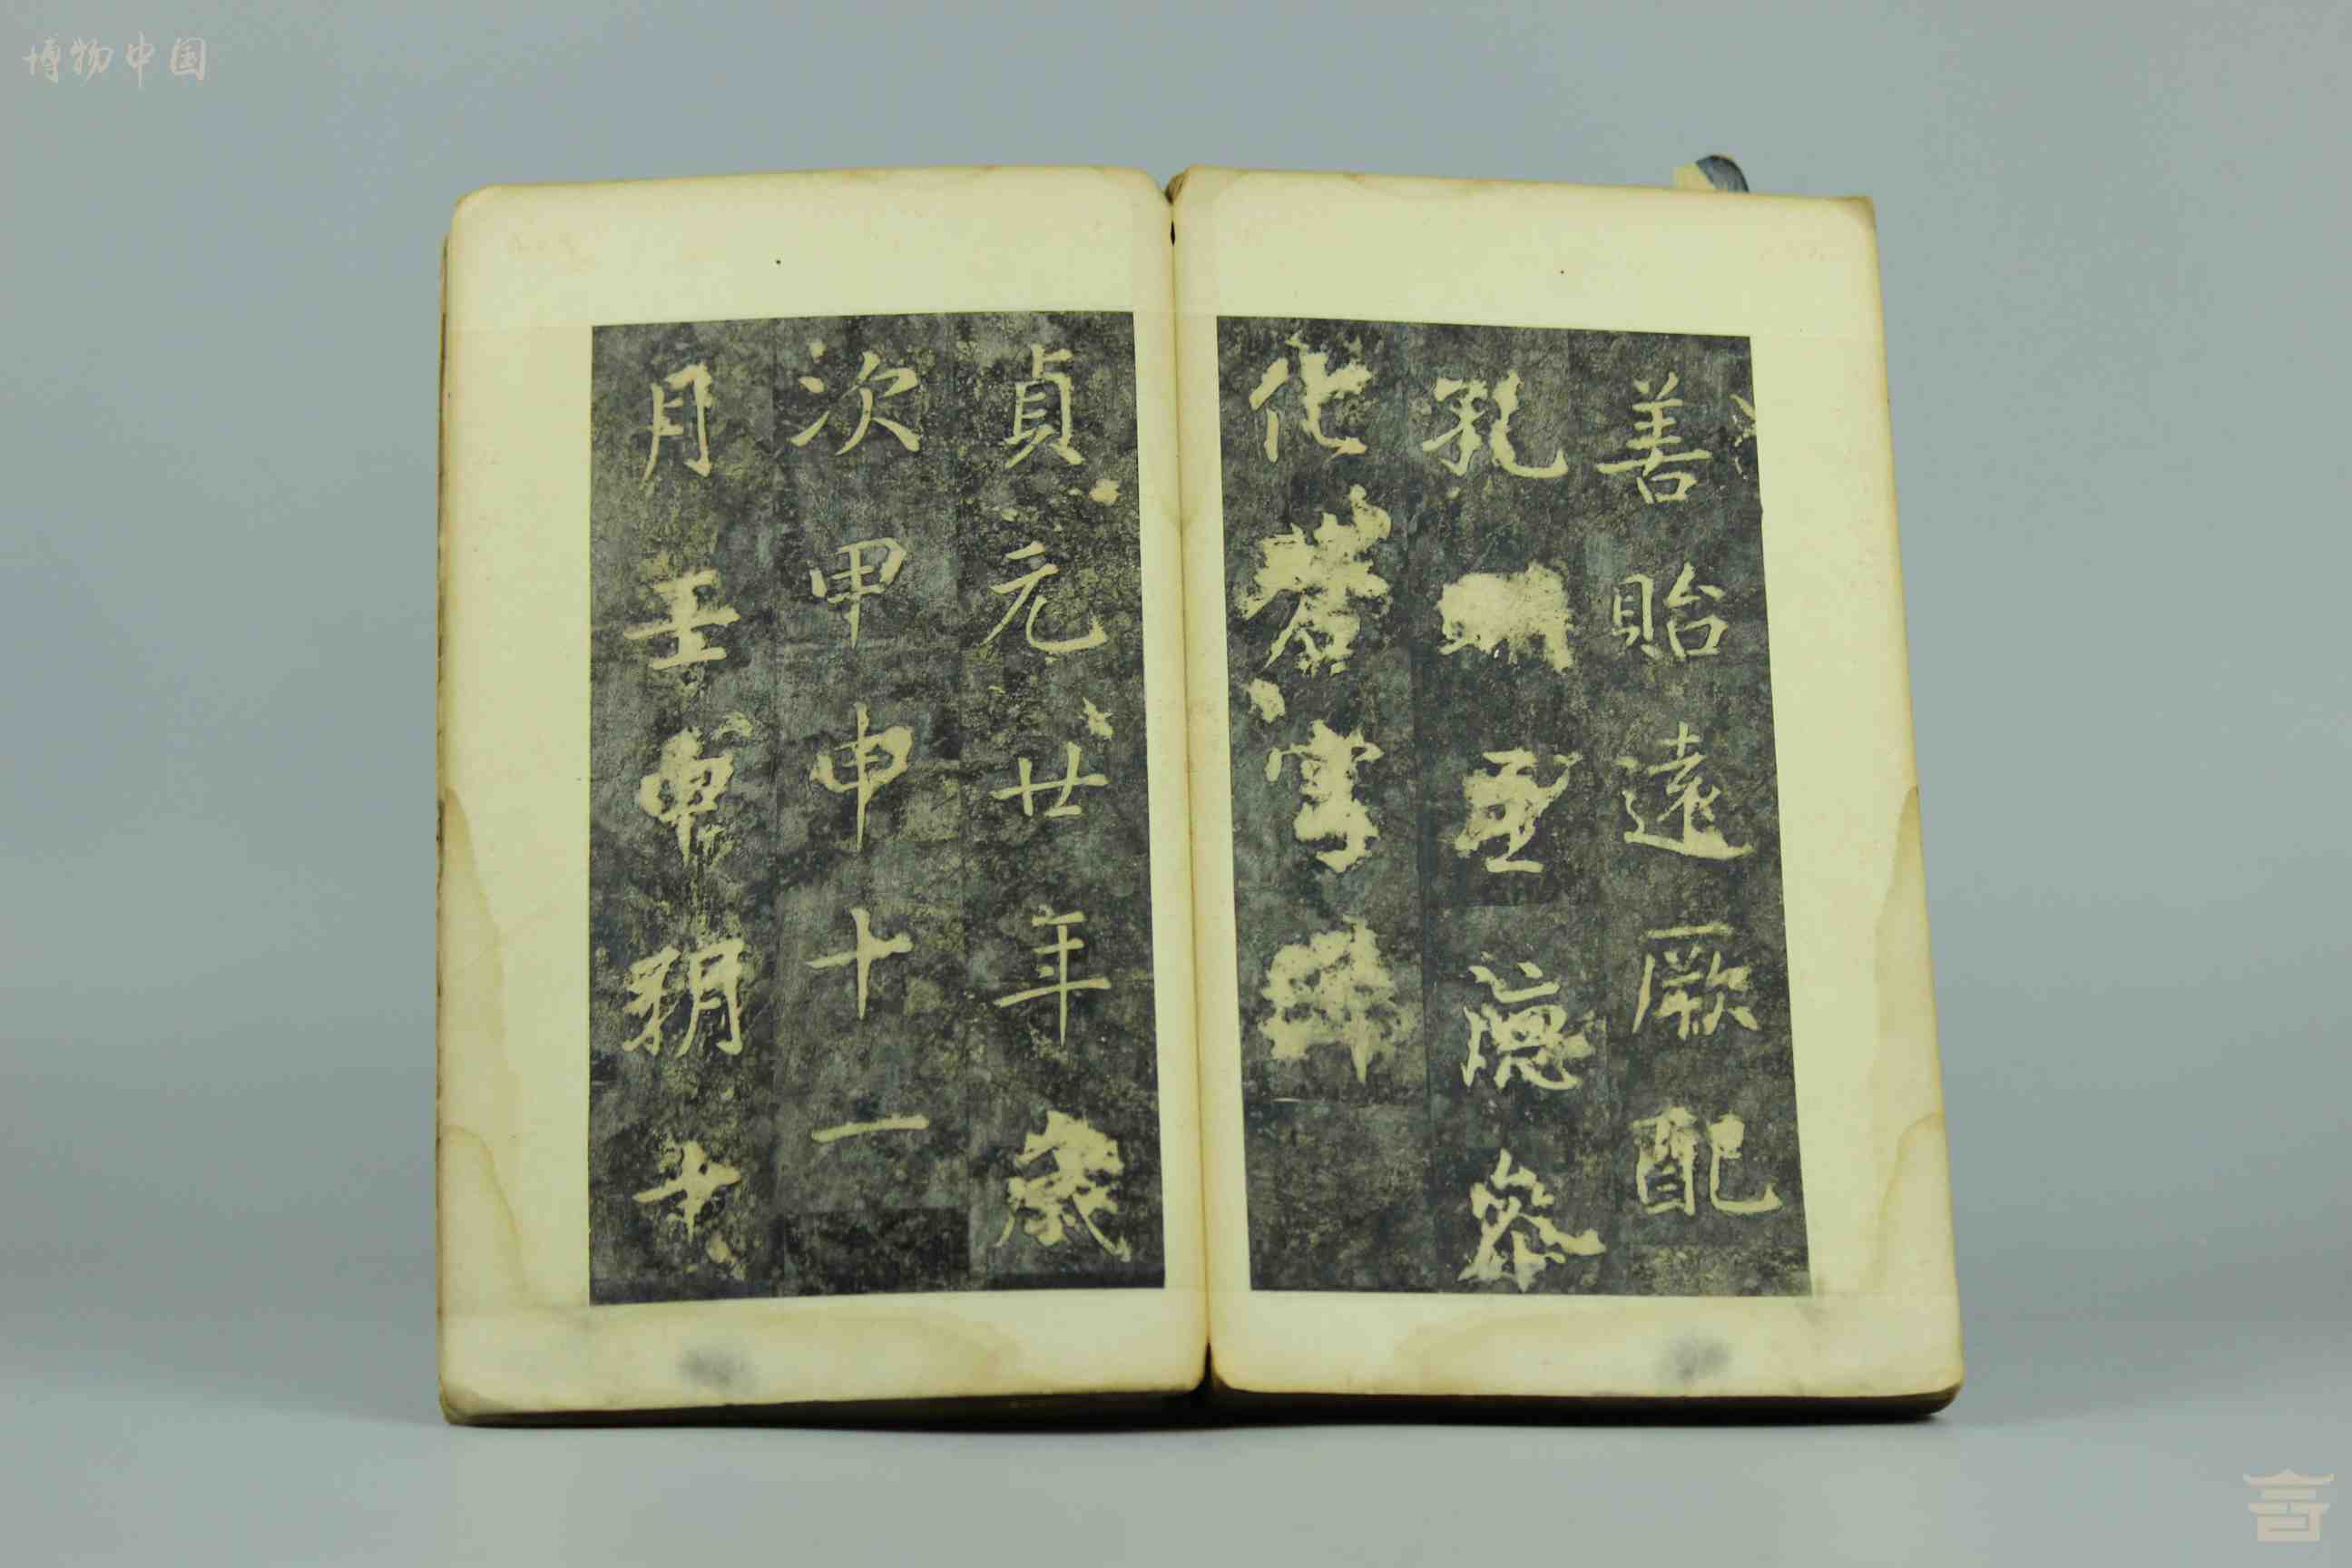 博物中国
善貽遠厥配
孔聖德參
化
貞元廿年歲
次甲申十一
月壬申朔十